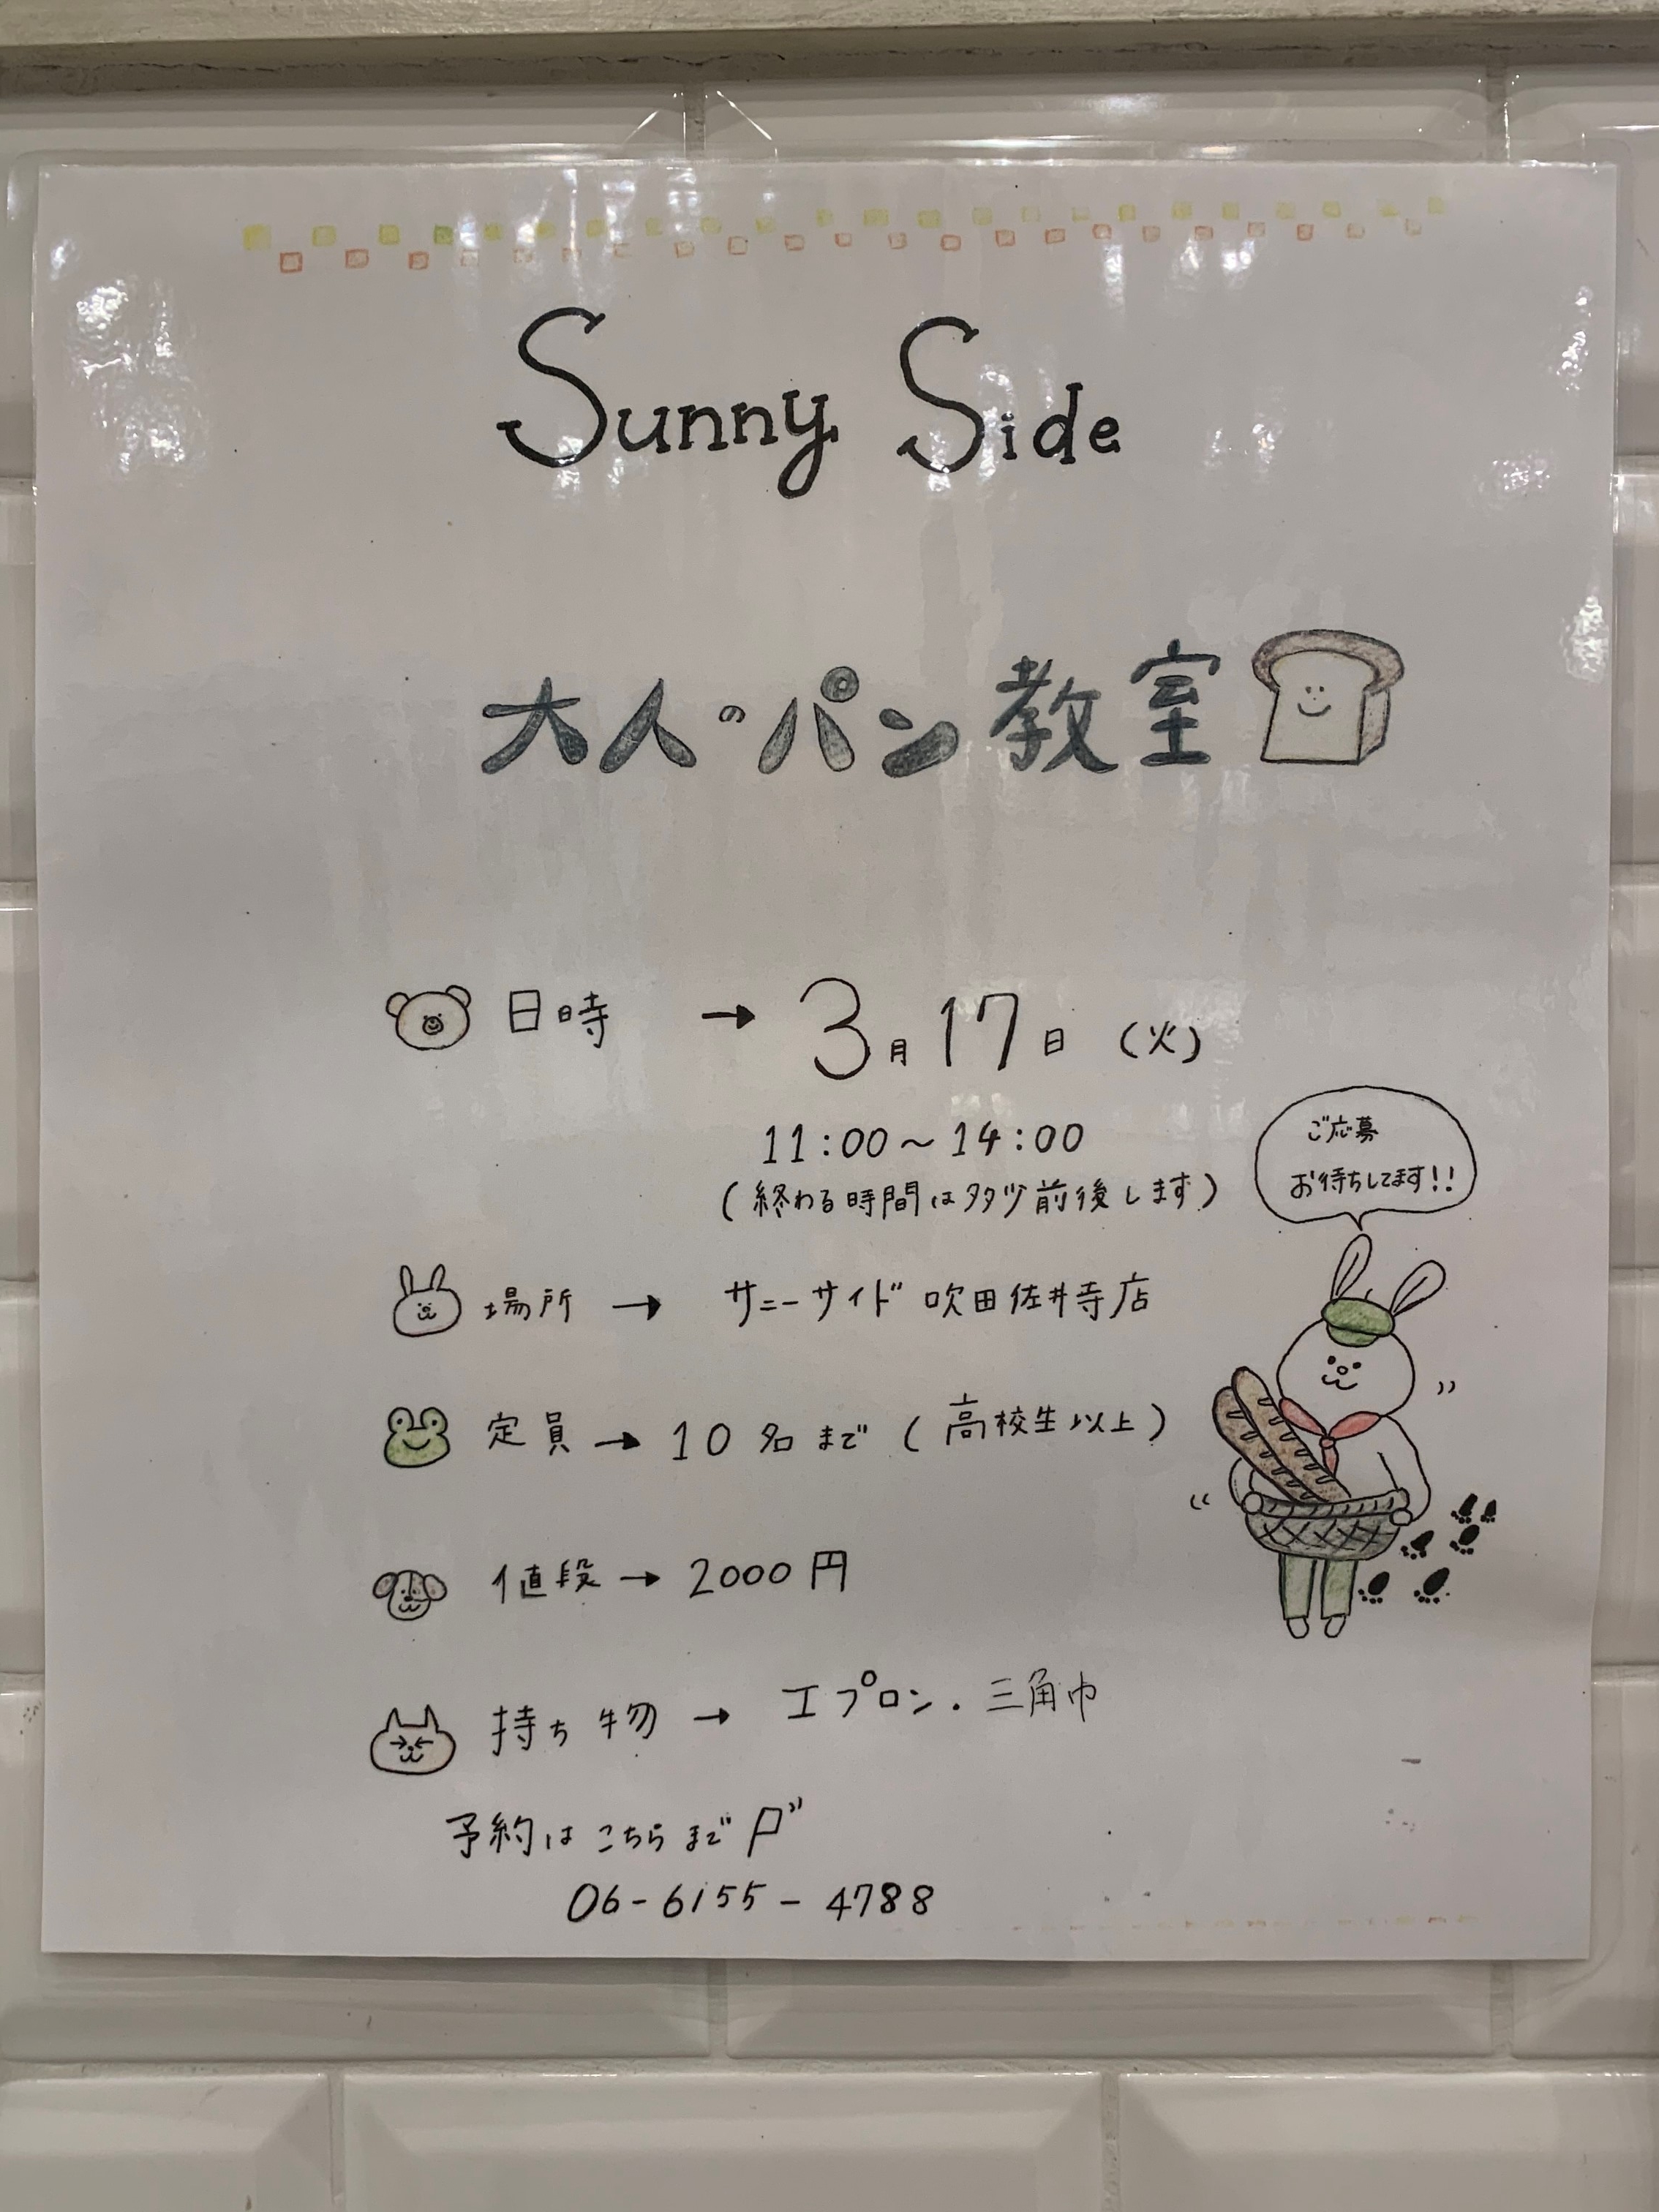 Sunny Side
大人のパン教室
日時 → 3月17日 (火)
11:00～14:00
(終わる時間は多少前後します)
ご応募
お待ちしてます!!
場所 → サニーサイド 吹田佐井寺店
定員 → 10名まで (高校生以上)
値段 → 2000円
持ち物 → エプロン.三角巾
予約はこちらまで
06-6155-4788